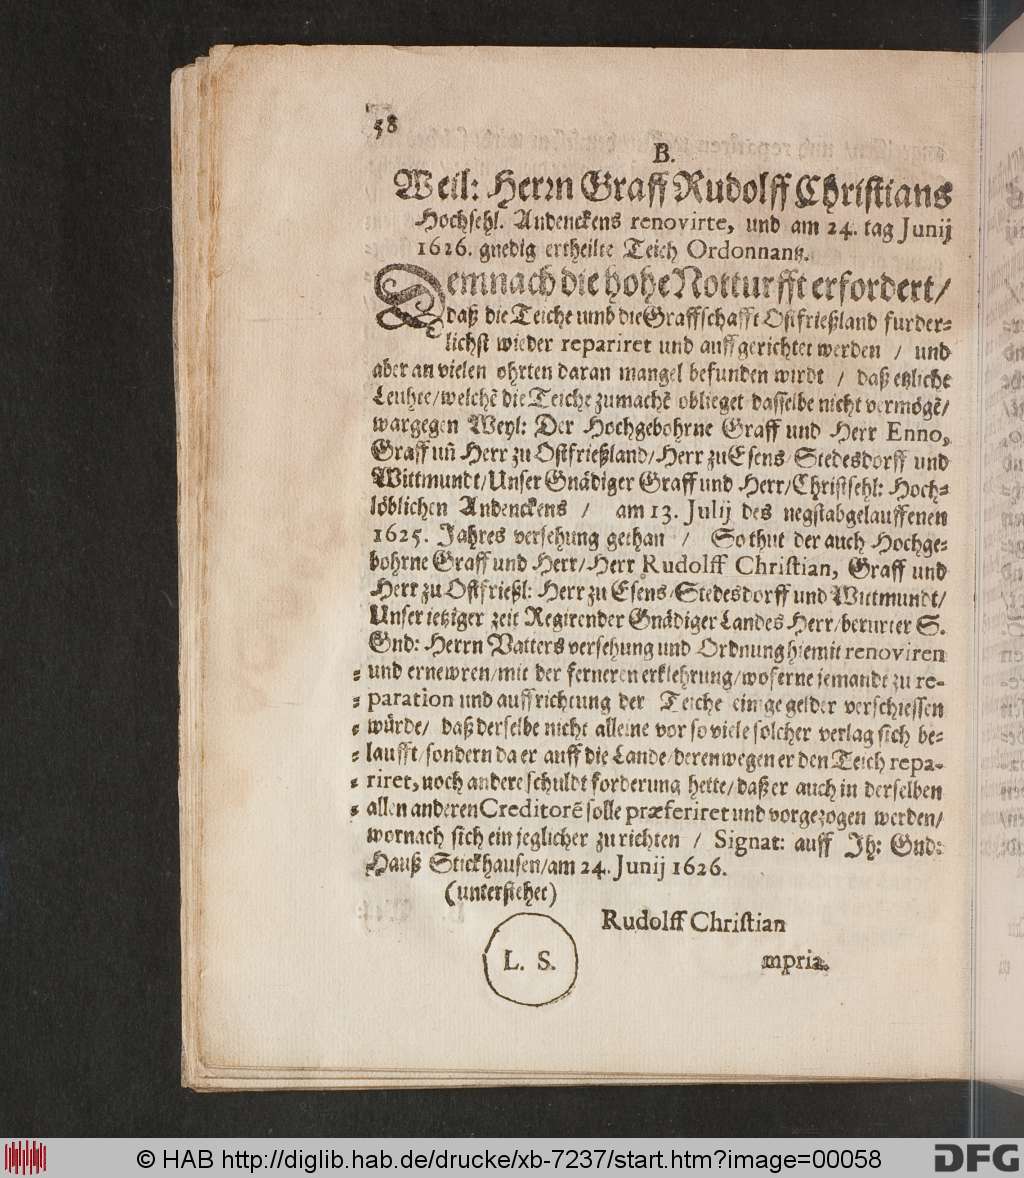 58
B.
Weil: Herrn Graff Rudolff Christians
Hochsehl. Andenckens renovirte, und am 24. tag Junij
1626. gnedig ertheilte Teich Ordonnantz.
Demnach die hohe Notturfft erfordert/
daß die Teiche umb die Graffschafft Ostfrießland furder-
lichst wieder repariret und auffgerichtet werden / und
aber an vielen ohrten daran mangel befunden wirdt / daß etzliche
Leuhte/welchē die Teiche zumachē oblieget dasselbe nicht vermögē/
wargegen Weyl: Der Hochgebohrne Graff und Herr Enno,
Graff uñ Herr zu Ostfrießland/Herr zu Esens Stedesdorff und
Wittmundt/Unser Gnädiger Graff und Herr/Christsehl: Hoch-
löblichen Andenckens / am 13. Julij des negstabgelauffenen
1625. Jahres versehung gethan / So thut der auch Hochge-
bohrne Graff und Herr/Herr Rudolff Christian, Graff und
Herr zu Ostfrießl: Herr zu Esens/Stedesdorff und Wittmundt/
Unser ietziger zeit Regirender Gnädiger Landes Herr/berurter S.
Gnd: Herrn Vatters versehung und Ordnung hiemit renoviren
und ernewren/mit der ferneren erklehrung/woferne jemandt zu re-
paration und auffrichtung der Teiche einige gelder verschiessen
würde/ daß derselbe nicht alleine vor so viele solcher verlag sich be-
laufft/sondern da er auff die Lande/derenwegen er den Teich repa-
riret, noch andere schuldt forderung hette/daß er auch in derselben
allen anderen Creditorē solle præferiret und vorgezogen werden/
wornach sich ein jeglicher zu richten / Signat: auff Ih: Gnd:
Hauß Stickhausen/am 24. Junij 1626.
(unterstehet)
Rudolff Christian
L. S.
mpria.
© HAB http://diglib.hab.de/drucke/xb-7237/start.htm?image=00058
DFG